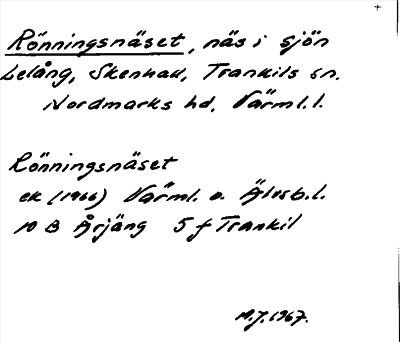 Rönningsnäset, näs i sjön
Lelång, Skenhall, Trankils sn.
Nordmarks hd, Värml.l.
Rönningsnäset
ek (1966) Värml. o. Älvsb.l.
10 B Årjäng 5 f Trankil
M.J. 1967.